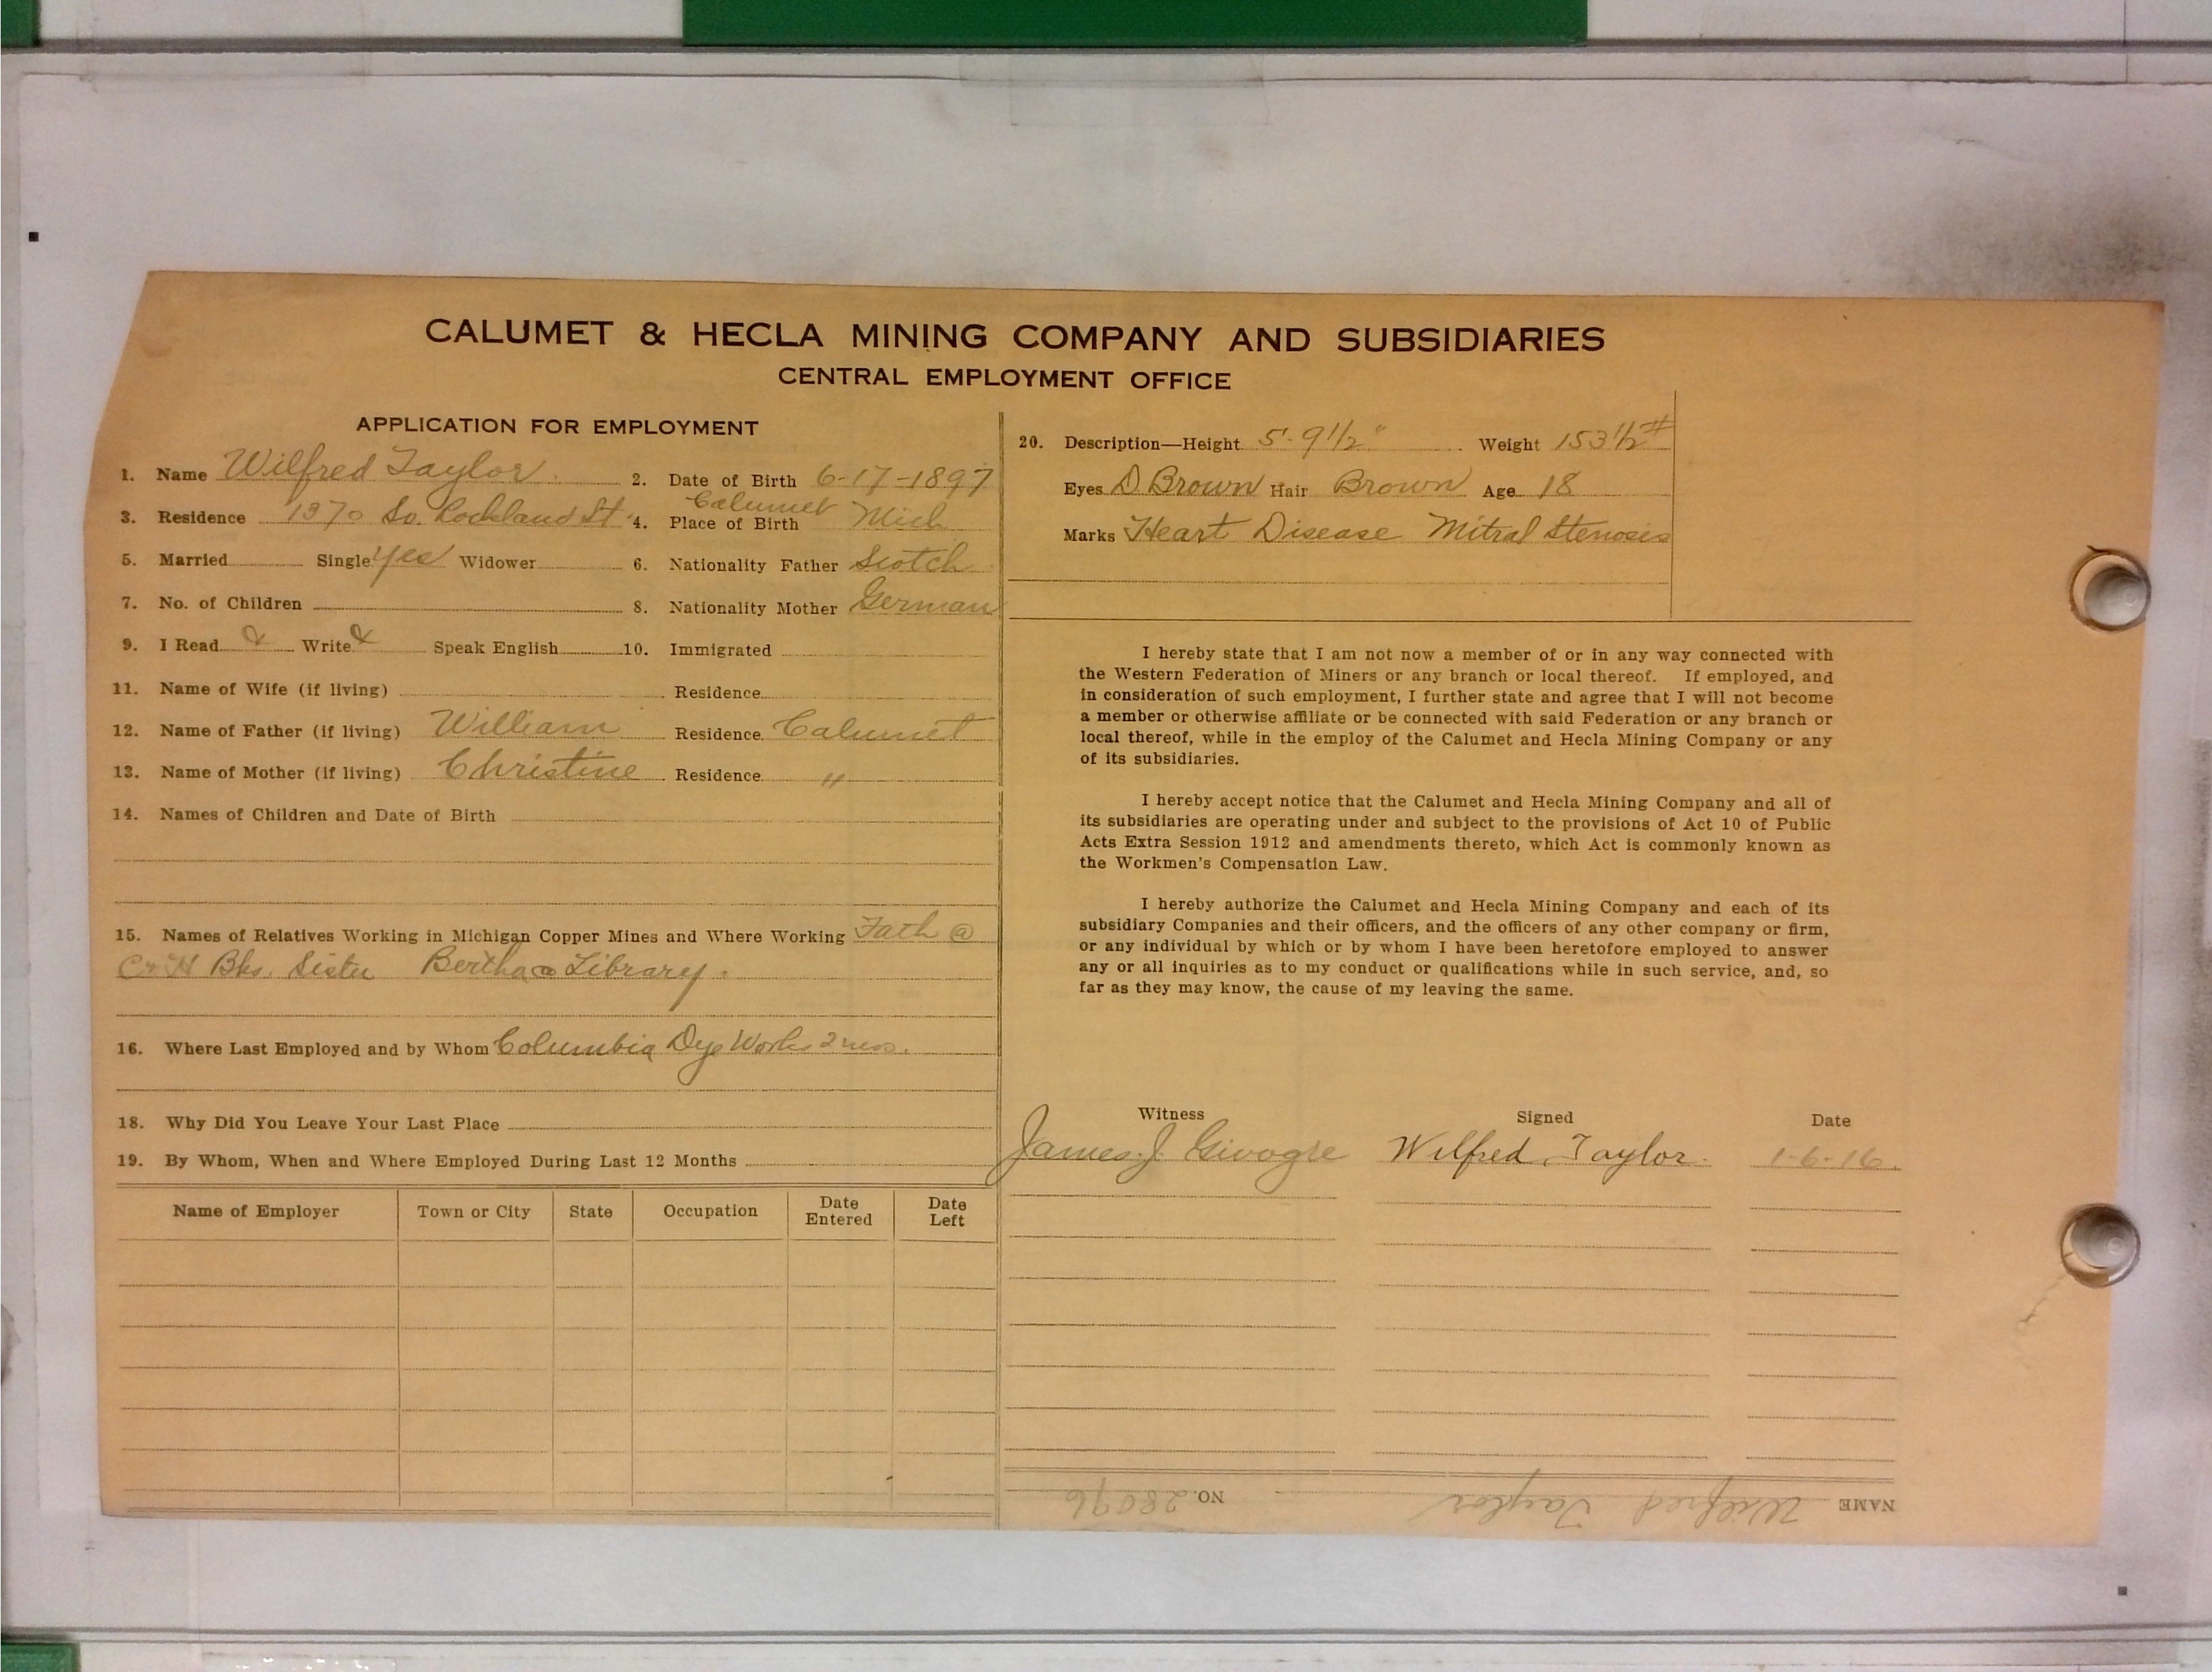 CALUMET & HECLA MINING COMPANY AND SUBSIDIARIES
CENTRAL EMPLOYMENT OFFICE
APPLICATION FOR EMPLOYMENT
1. Name Wilfred Taylor 2. Date of Birth 6-17-1897
3. Residence 1370 So. Rockland St. 4. Place of Birth Calumet Mich
5. Married Single yes Widower 6. Nationality Father Scotch
7. No. of Children 8. Nationality Mother German
9. I Read & Write & Speak English 10. Immigrated
11. Name of Wife (if living) Residence
12. Name of Father (if living) William Residence Calumet
13. Name of Mother (if living) Christine Residence "
14. Names of Children and Date of Birth
15. Names of Relatives Working in Michigan Copper Mines and Where Working Fath @
C & H Bks. Sister Bertha @ Library.
16. Where Last Employed and by Whom Columbia Dye Works 2 mos.
18. Why Did You Leave Your Last Place
19. By Whom, When and Where Employed During Last 12 Months
Name of Employer Town or City State Occupation Date Entered Date Left
20. Description—Height 5'-9 1/2" Weight 153 1/2 #
Eyes D Brown Hair Brown Age 18
Marks Heart Disease Mitral Stenosis
I hereby state that I am not now a member of or in any way connected with
the Western Federation of Miners or any branch or local thereof. If employed, and
in consideration of such employment, I further state and agree that I will not become
a member or otherwise affiliate or be connected with said Federation or any branch or
local thereof, while in the employ of the Calumet and Hecla Mining Company or any
of its subsidiaries.
I hereby accept notice that the Calumet and Hecla Mining Company and all of
its subsidiaries are operating under and subject to the provisions of Act 10 of Public
Acts Extra Session 1912 and amendments thereto, which Act is commonly known as
the Workmen's Compensation Law.
I hereby authorize the Calumet and Hecla Mining Company and each of its
subsidiary Companies and their officers, and the officers of any other company or firm,
or any individual by which or by whom I have been heretofore employed to answer
any or all inquiries as to my conduct or qualifications while in such service, and, so
far as they may know, the cause of my leaving the same.
Witness Signed Date
James J. Wilfred Taylor. 1-6-16.
NAME Wilfred Taylor NO. 28096